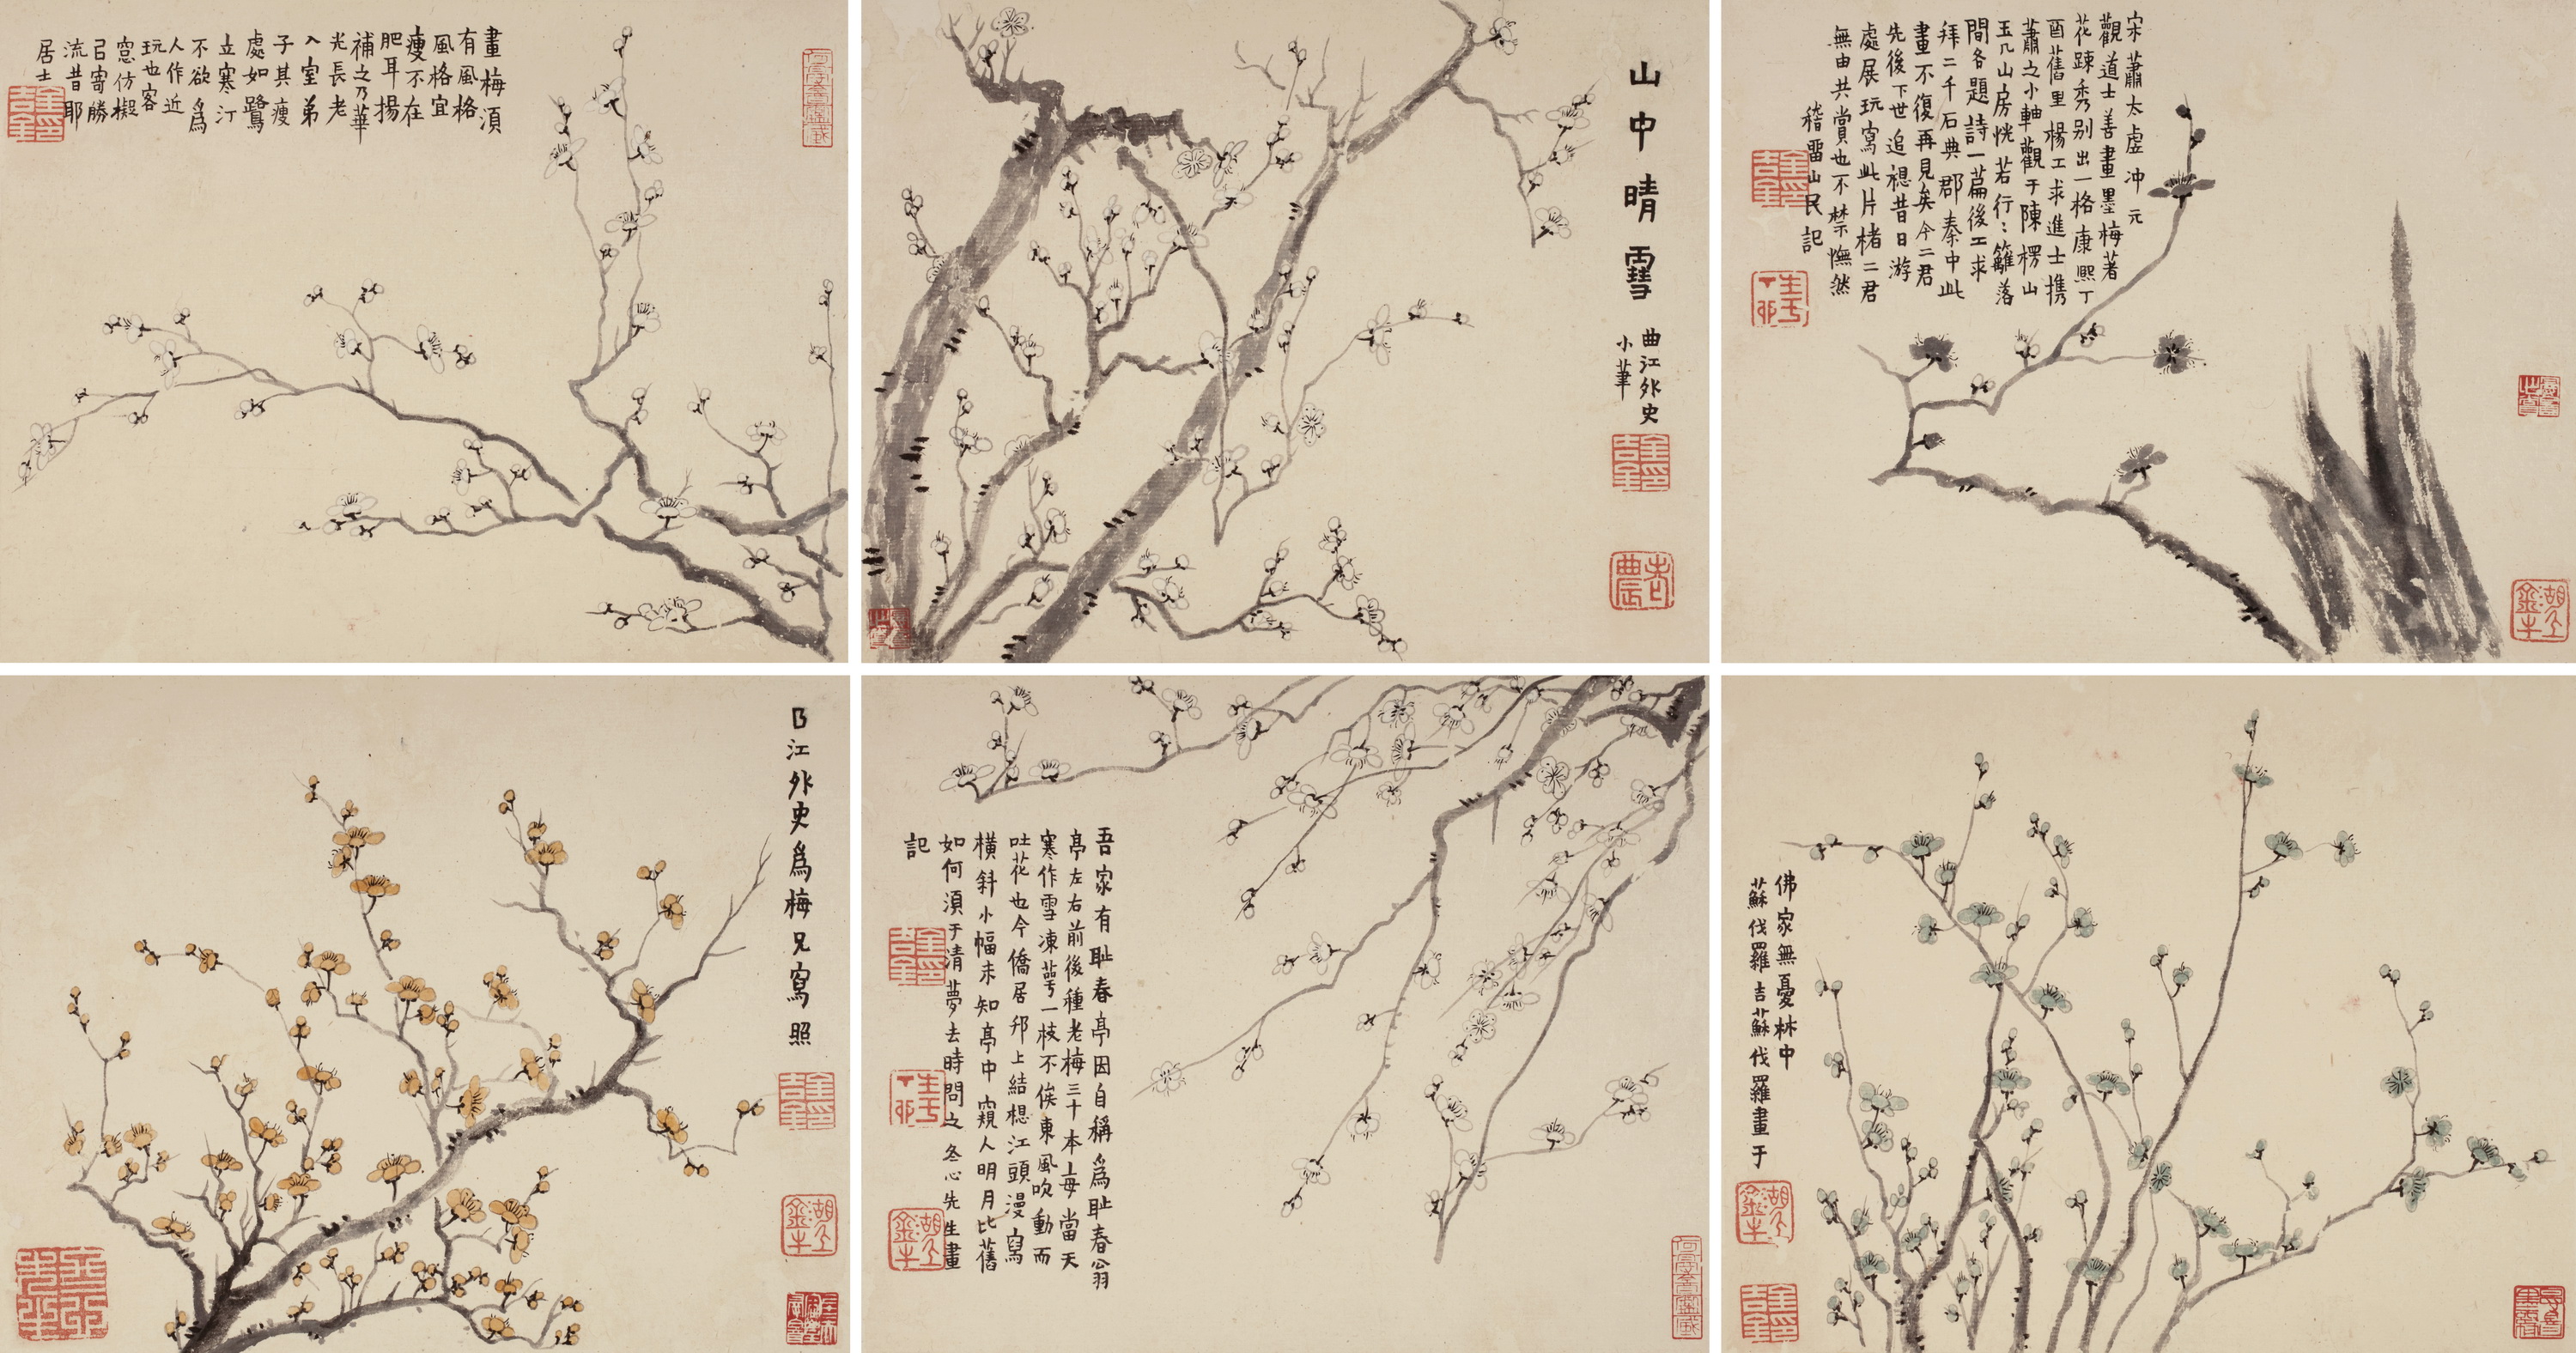 畫梅湏
有風格
風格宜
瘦不在
肥耳揚
補之乃華
光長老
入室弟
子其瘦
處如鷺
立寒汀
不欲爲
人作近
玩也客
窓仿擬
㠯寄勝
流昔耶
居士
山中晴雪
曲江外史
小筆
宋蕭太虛冲元
觀道士善畫墨梅著
花踈秀别出一格康熙丁
酉舊里楊工求進士携
蕭之小軸觀于陳楞山
玉几山房恍若行〻籬落
間各題詩一篇後工求
拜二千石典郡秦中此
畫不復再見矣今二君
先後下世追想昔日游
處展玩寫此片楮二君
無由共賞也不禁憮然
稽畱山民記
曲江外史爲梅兄寫照
吾家有耻春亭因自稱爲耻春翁
亭左右前後種老梅三十本每當天
寒作雪凍萼一枝不俟東風吹動而
吐花也今僑居邗上結想江頭漫寫
橫斜小幅未知亭中窺人明月比舊
如何湏于清夢去時問之冬心先生畫
記
佛家無憂林中
蘇伐羅吉蘇伐羅畫于